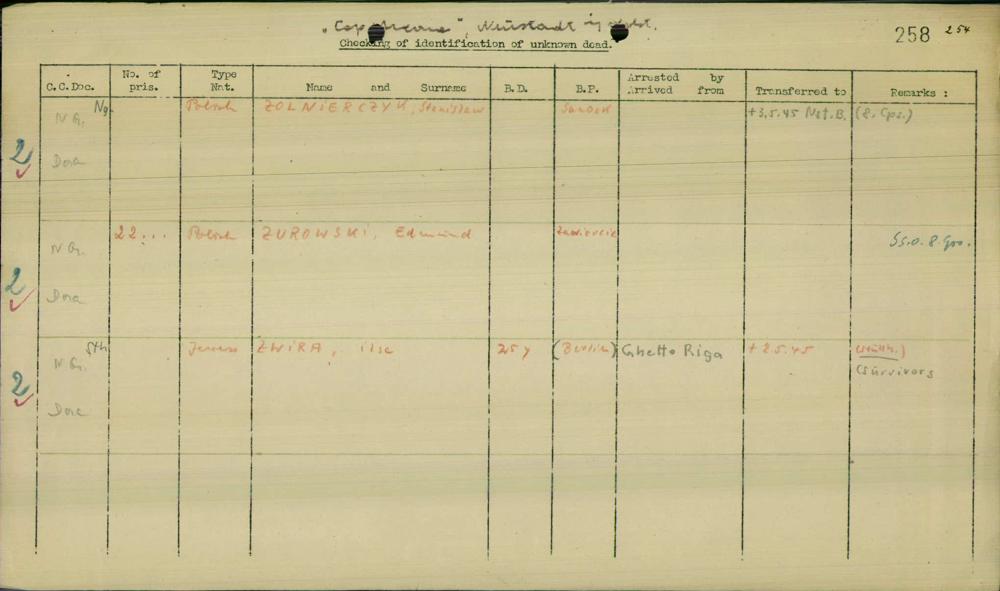 "Cap Arcona", Neustadt i/Holst.
258 254
Checking of identification of unknown dead.
C.C.Doc. No. of pris. Type Nat. Name and Surname B.D. B.P. Arrested by Arrived from Transferred to Remarks :
Ng. N G. Polish ZOLNIERCZYK, Stanislaw Sanook +3.5.45 Nst.B. (8. Cps.)
2 Dora
N G. 22... Polish ZUROWSKI, Edmund Zawiercie
2 Dora
Sth N G. Jewess ZWIRA, ilse 25 y (Berlin) Ghetto Riga + 2.5.45 (Stutth.)
(Survivors
2 Dora